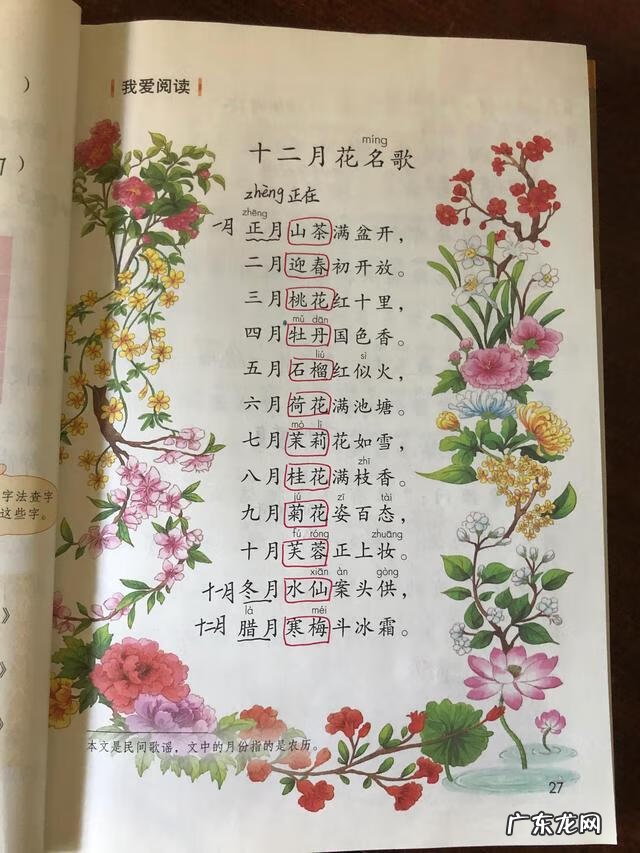 我爱阅读
十二月花名歌
míng
zhèng 正在
zhēng
一月 正月山茶满盆开，
二月迎春初开放。
三月桃花红十里，
mǔ dān
四月牡丹国色香。
liú sì
五月石榴红似火，
六月荷花满池塘。
mò lì
七月茉莉花如雪，
zhī
八月桂花满枝香。
jú zī tài
九月菊花姿百态，
fú róng zhuāng
十月芙蓉正上妆。
xiān àn gòng
十一月 冬月水仙案头供，
là méi
十二月 腊月寒梅斗冰霜。
字法查字
这些字。
》
》
）
7 ）
本文是民间歌谣，文中的月份指的是农历。
27
广东龙网